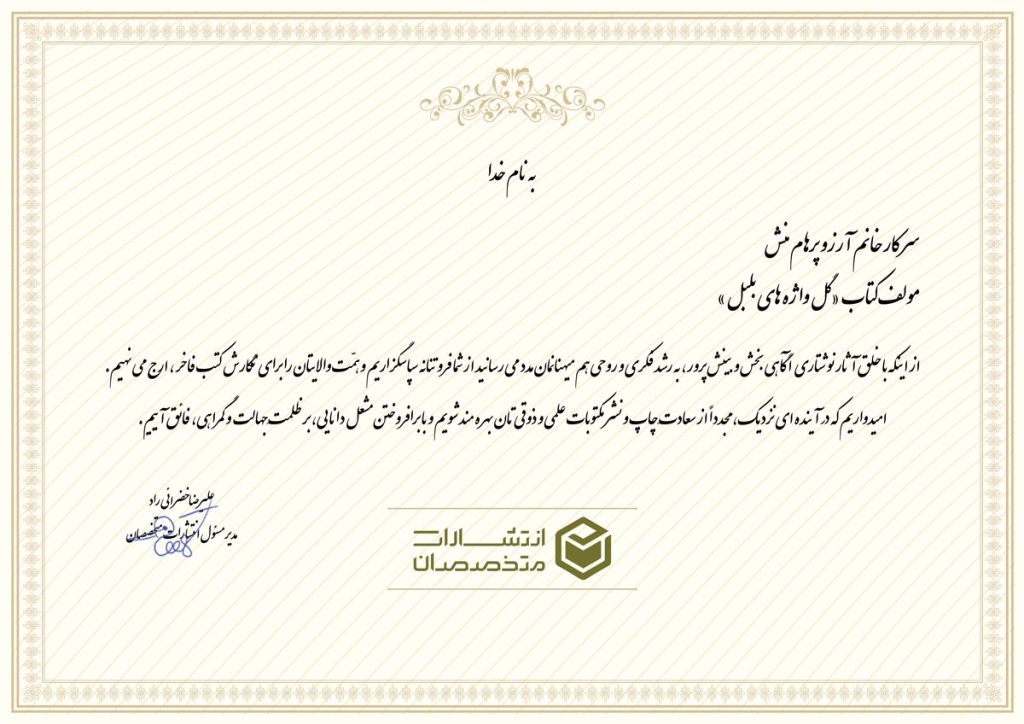 به نام خدا
سرکار خانم آرزو پرهام منش
مولف کتاب «گل واژه های بلبل»
از اینکه با خلق آثار نوشتاری آگاهی بخش و بینش پرور، به رشد فکری و روحی هم میهنانمان مدد می رسانید از شما فروتنانه سپاسگزاریم و همّت والایتان را برای نگارش کتب فاخر، ارج می نهیم.
امیدواریم که در آینده ای نزدیک، مجدداً از سعادت چاپ و نشر مکتوبات علمی و ذوقی تان بهره مند شویم و با برافروختن مشعل دانایی، بر ظلمت جهالت و گمراهی، فائق آییم.
علیرضا خضرائی راد
مدیر مسئول انتشارات متخصصان
انتشارات
متخصصان